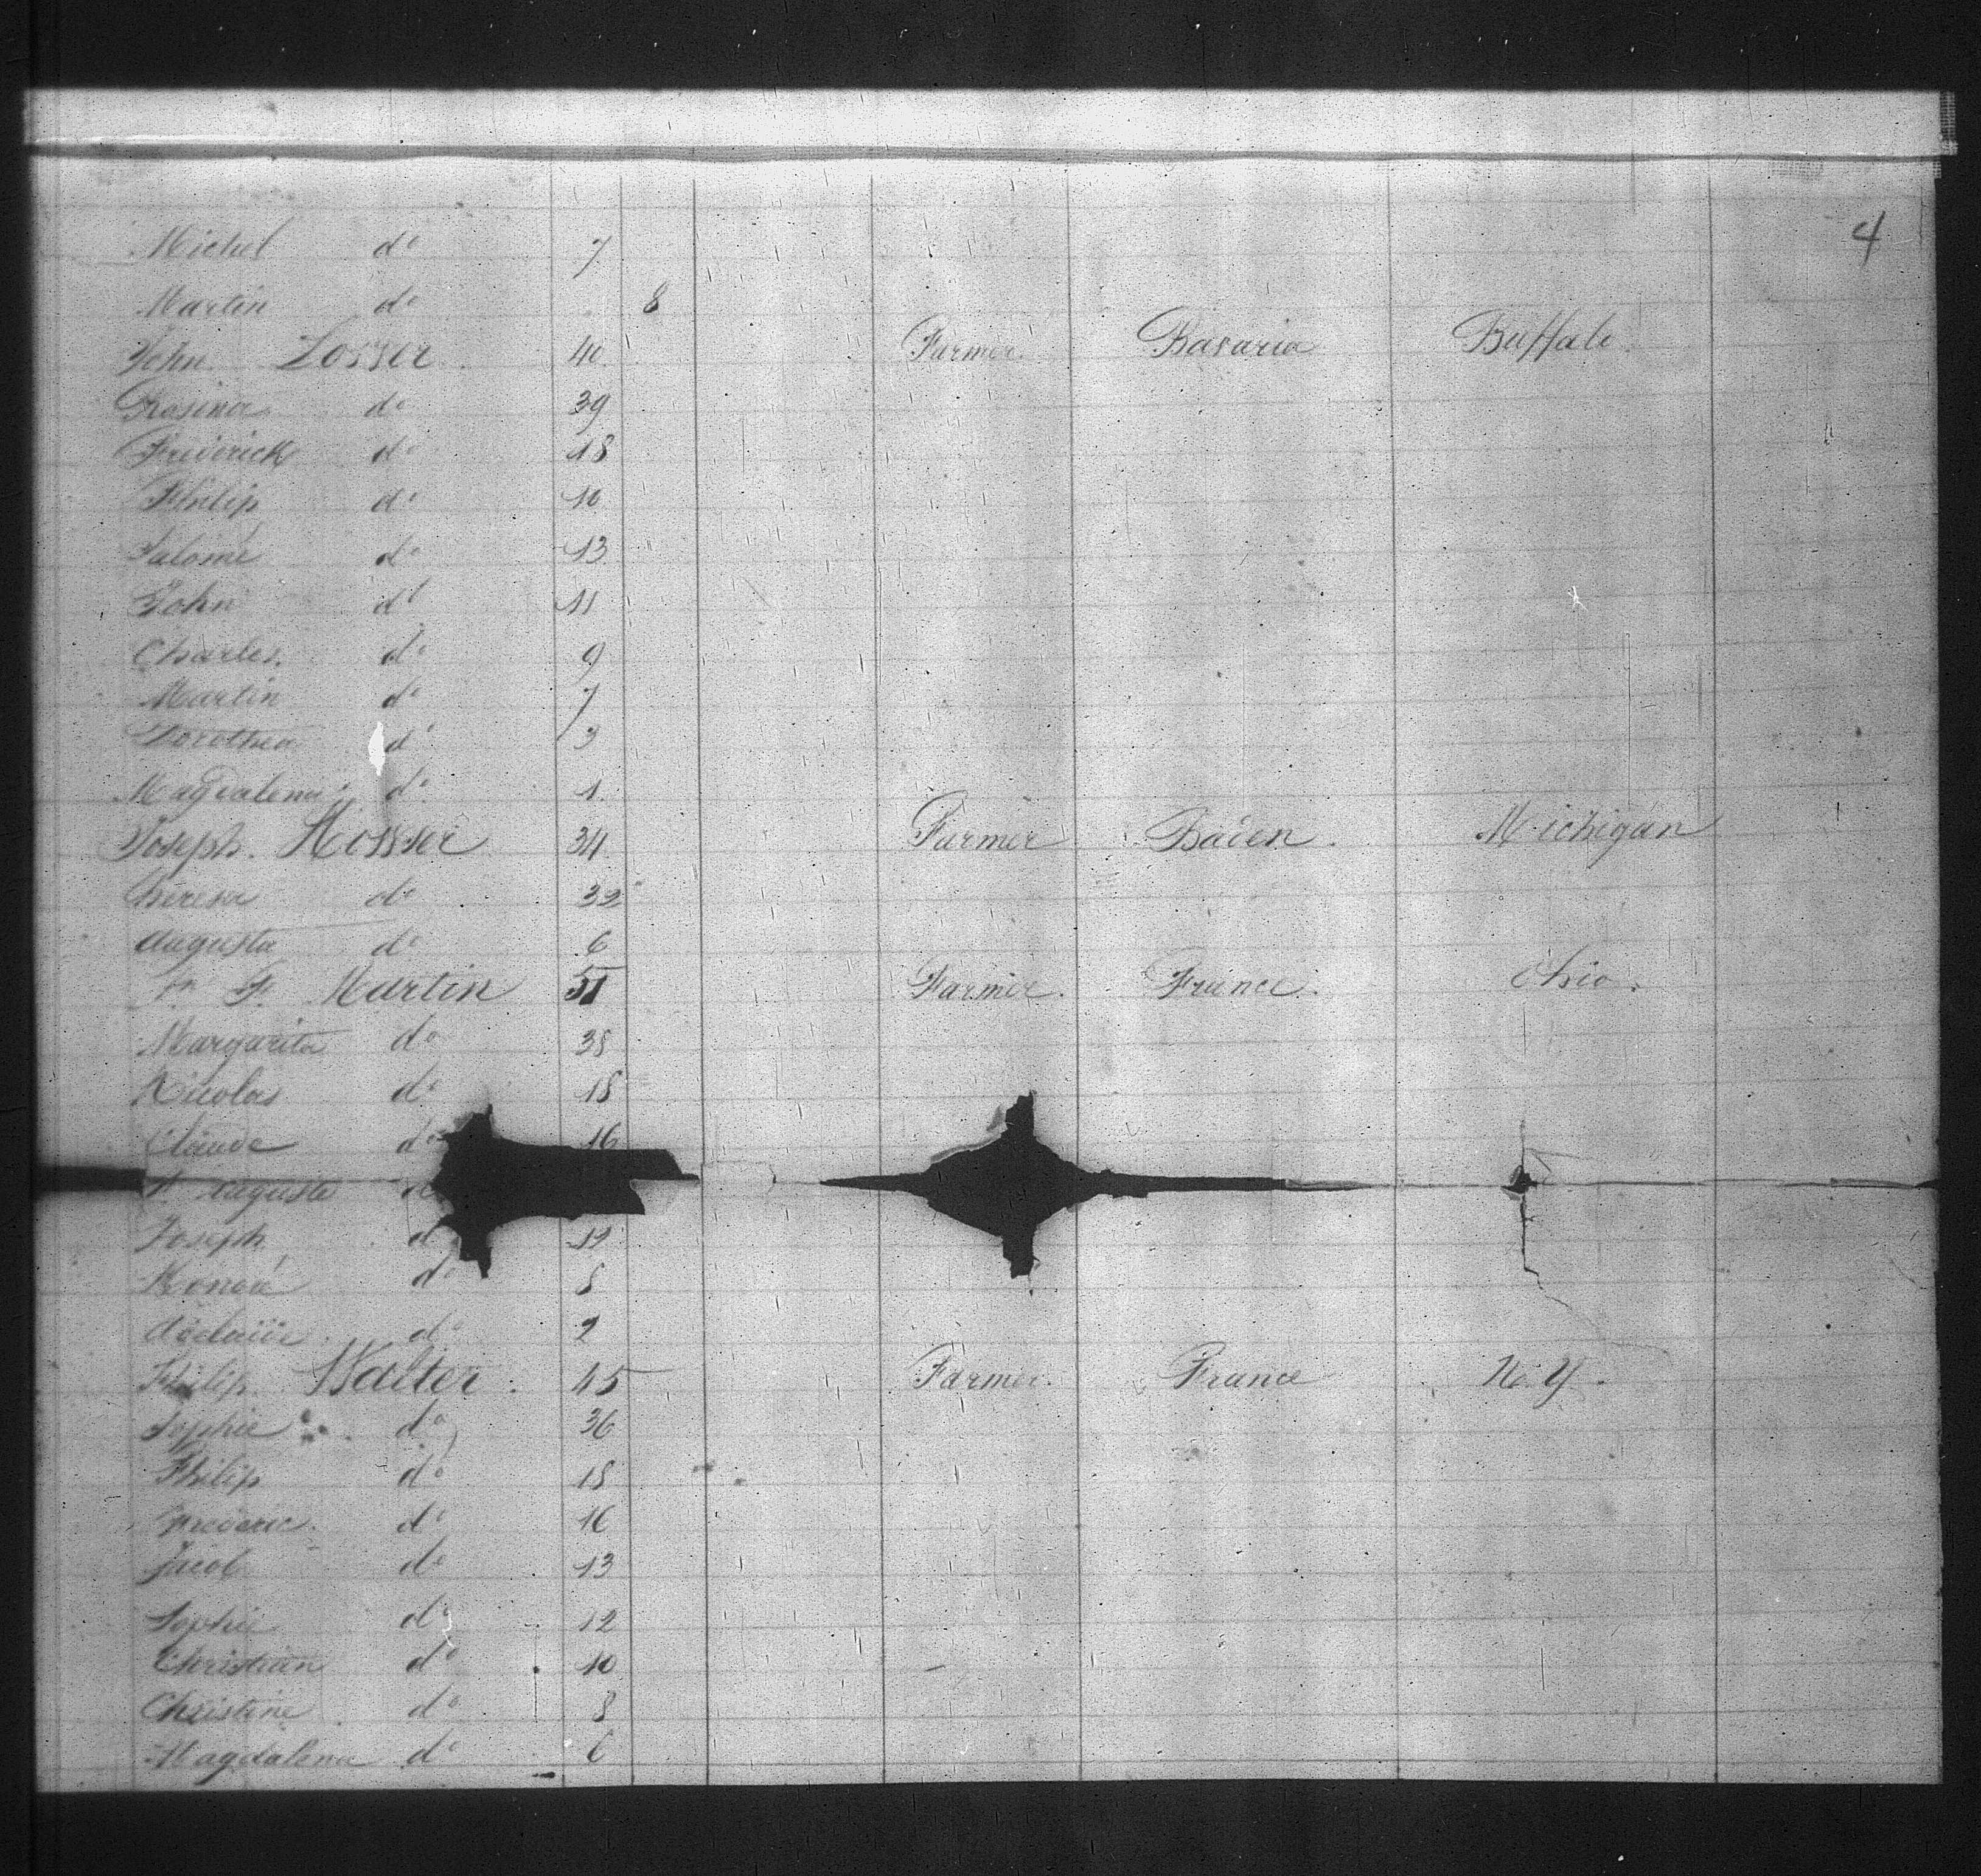 4
Michel do 7
Martin do 8
John Losser 40 Farmer Bavaria Buffalo
Rosina do 39
Frederick do 18
Philip do 10
Salomé do 13
John do 11
Charles do 9
Martin do 7
Dorothea do 3
Magdalena do 1
Joseph Hosser 34 Farmer Baden Michigan
Theresa do 32
Augusta do 6
F. Martin 51 Farmer France Ohio
Margarita do 38
Nicolas do 18
Claude do 16
Auguste do
Joseph do
do 8
Adelaide do 2
Philip Walter 45 Farmer France N. Y.
Sophie do 36
Philip do 18
Frederic do 16
Jacob do 13
Sophie do 12
Christian do 10
Christine do 8
Magdalena do 6